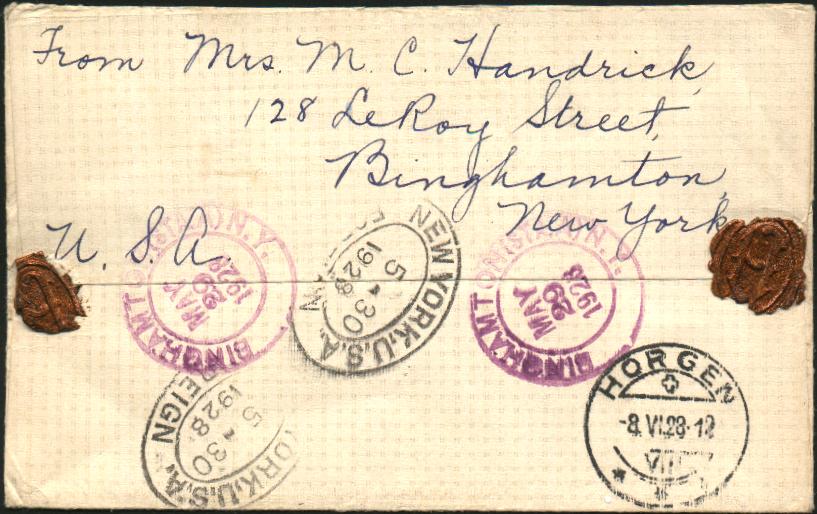 From Mrs. M. C. Handrick,
128 LeRoy Street,
Binghamton,
New York
U. S. A.
BINGHAMTON N.Y.
MAY
29
1928
NEW YORK, U.S.A.
FOREIGN
5-30
1928
BINGHAMTON N.Y.
MAY
29
1928
YORK, U.S.A.
REIGN
5-30
1928
HORGEN
-8.VI.28-12